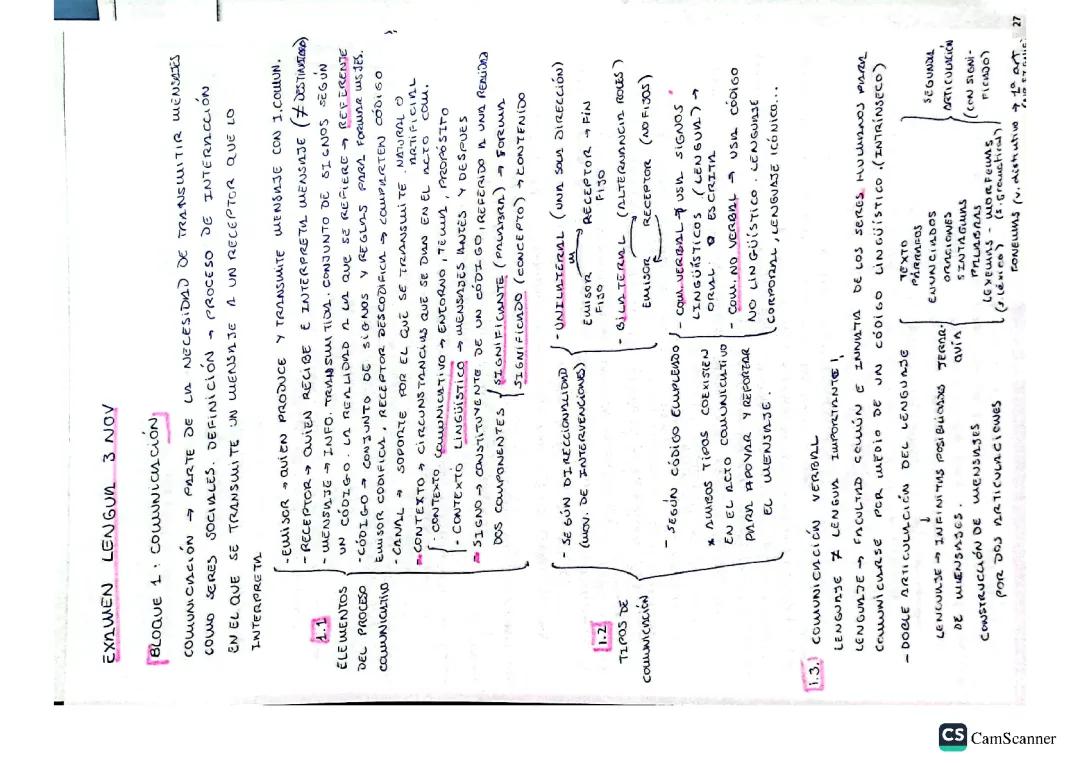 EXAMEN LENGUA 3 NOV
BLOQUE 1: COMUNICACIÓN
COMUNICACIÓN → PARTE DE LA NECESIDAD DE TRANSMITIR MENSAJES
COMO SERES SOCIALES. DEFINICIÓN → PROCESO DE INTERACCIÓN
EN EL QUE SE TRANSMITE UN MENSAJE A UN RECEPTOR QUE LO
INTERPRETA
1.1
ELEMENTOS
DEL PROCESO
COMUNICATIVO
- EMISOR → QUIEN PRODUCE Y TRANSMITE MENSAJE CON I.COMUN.
- RECEPTOR → QUIEN RECIBE E INTERPRETA MENSAJE (≠ DESTINATARIO)
- MENSAJE → INFO. TRANSMITIDA. CONJUNTO DE SIGNOS SEGÚN
UN CÓDIGO. LA REALIDAD A LA QUE SE REFIERE → REFERENTE
- CÓDIGO → CONJUNTO DE SIGNOS Y REGLAS PARA FORMAR MSJES.
EMISOR CODIFICA, RECEPTOR DESCODIFICA → COMPARTEN CÓDIGO
- CANAL → SOPORTE POR EL QUE SE TRANSMITE. NATURAL O
ARTIFICIAL
- CONTEXTO → CIRCUNSTANCIAS QUE SE DAN EN EL ACTO COM.
- CONTEXTO COMUNICATIVO → ENTORNO, TEMA, PROPÓSITO
- CONTEXTO LINGÜÍSTICO → MENSAJES ANTES Y DESPUES
- SIGNO → CONSTITUYENTE DE UN CÓDIGO, REFERIDO A UNA REALIDAD
DOS COMPONENTES { SIGNIFICANTE (PALABRA) → FORMA
SIGNIFICADO (CONCEPTO) → CONTENIDO
1.2
TIPOS DE
COMUNICACIÓN
- SEGÚN DIRECCIONALIDAD
(MOV. DE INTERVENCIONES)
- UNILATERAL (UNA SOLA DIRECCIÓN)
EMISOR → RECEPTOR → FIN
FIJO FIJO
- BILATERAL (ALTERNANCIA ROLES)
EMISOR RECEPTOR (NO FIJOS)
- SEGÚN CÓDIGO EMPLEADO
* AMBOS TIPOS COEXISTEN
EN EL ACTO COMUNICATIVO
PARA APOYAR Y REFORZAR
EL MENSAJE.
- COM. VERBAL → USA SIGNOS
LINGÜÍSTICOS (LENGUA) →
ORAL O ESCRITA
- COM. NO VERBAL → USA CÓDIGO
NO LINGÜÍSTICO. LENGUAJE
CORPORAL, LENGUAJE ICÓNICO...
1.3. COMUNICACIÓN VERBAL
LENGUAJE ≠ LENGUA IMPORTANTE!
LENGUAJE → FACULTAD COMÚN E INNATA DE LOS SERES HUMANOS PARA
COMUNICARSE POR MEDIO DE UN CÓDIGO LINGÜÍSTICO. (INTRÍNSECO)
- DOBLE ARTICULACIÓN DEL LENGUAJE
LENGUAJE → INFINITAS POSIBILIDADES
DE MENSAJES.
CONSTRUCCIÓN DE MENSAJES
POR DOS ARTICULACIONES
JERAR-
QUÍA
TEXTO
PÁRRAFOS
ENUNCIADOS
ORACIONES
SINTAGMAS
PALABRAS
LEXEMAS - MORFEMAS
(s. léxico) (s. gramatical)
FONEMAS (v. distintivo → 1ª ART.
SEGUNDA
ARTICULACIÓN
(CON SIGNI-
FICADO)
27
CS CamScanner